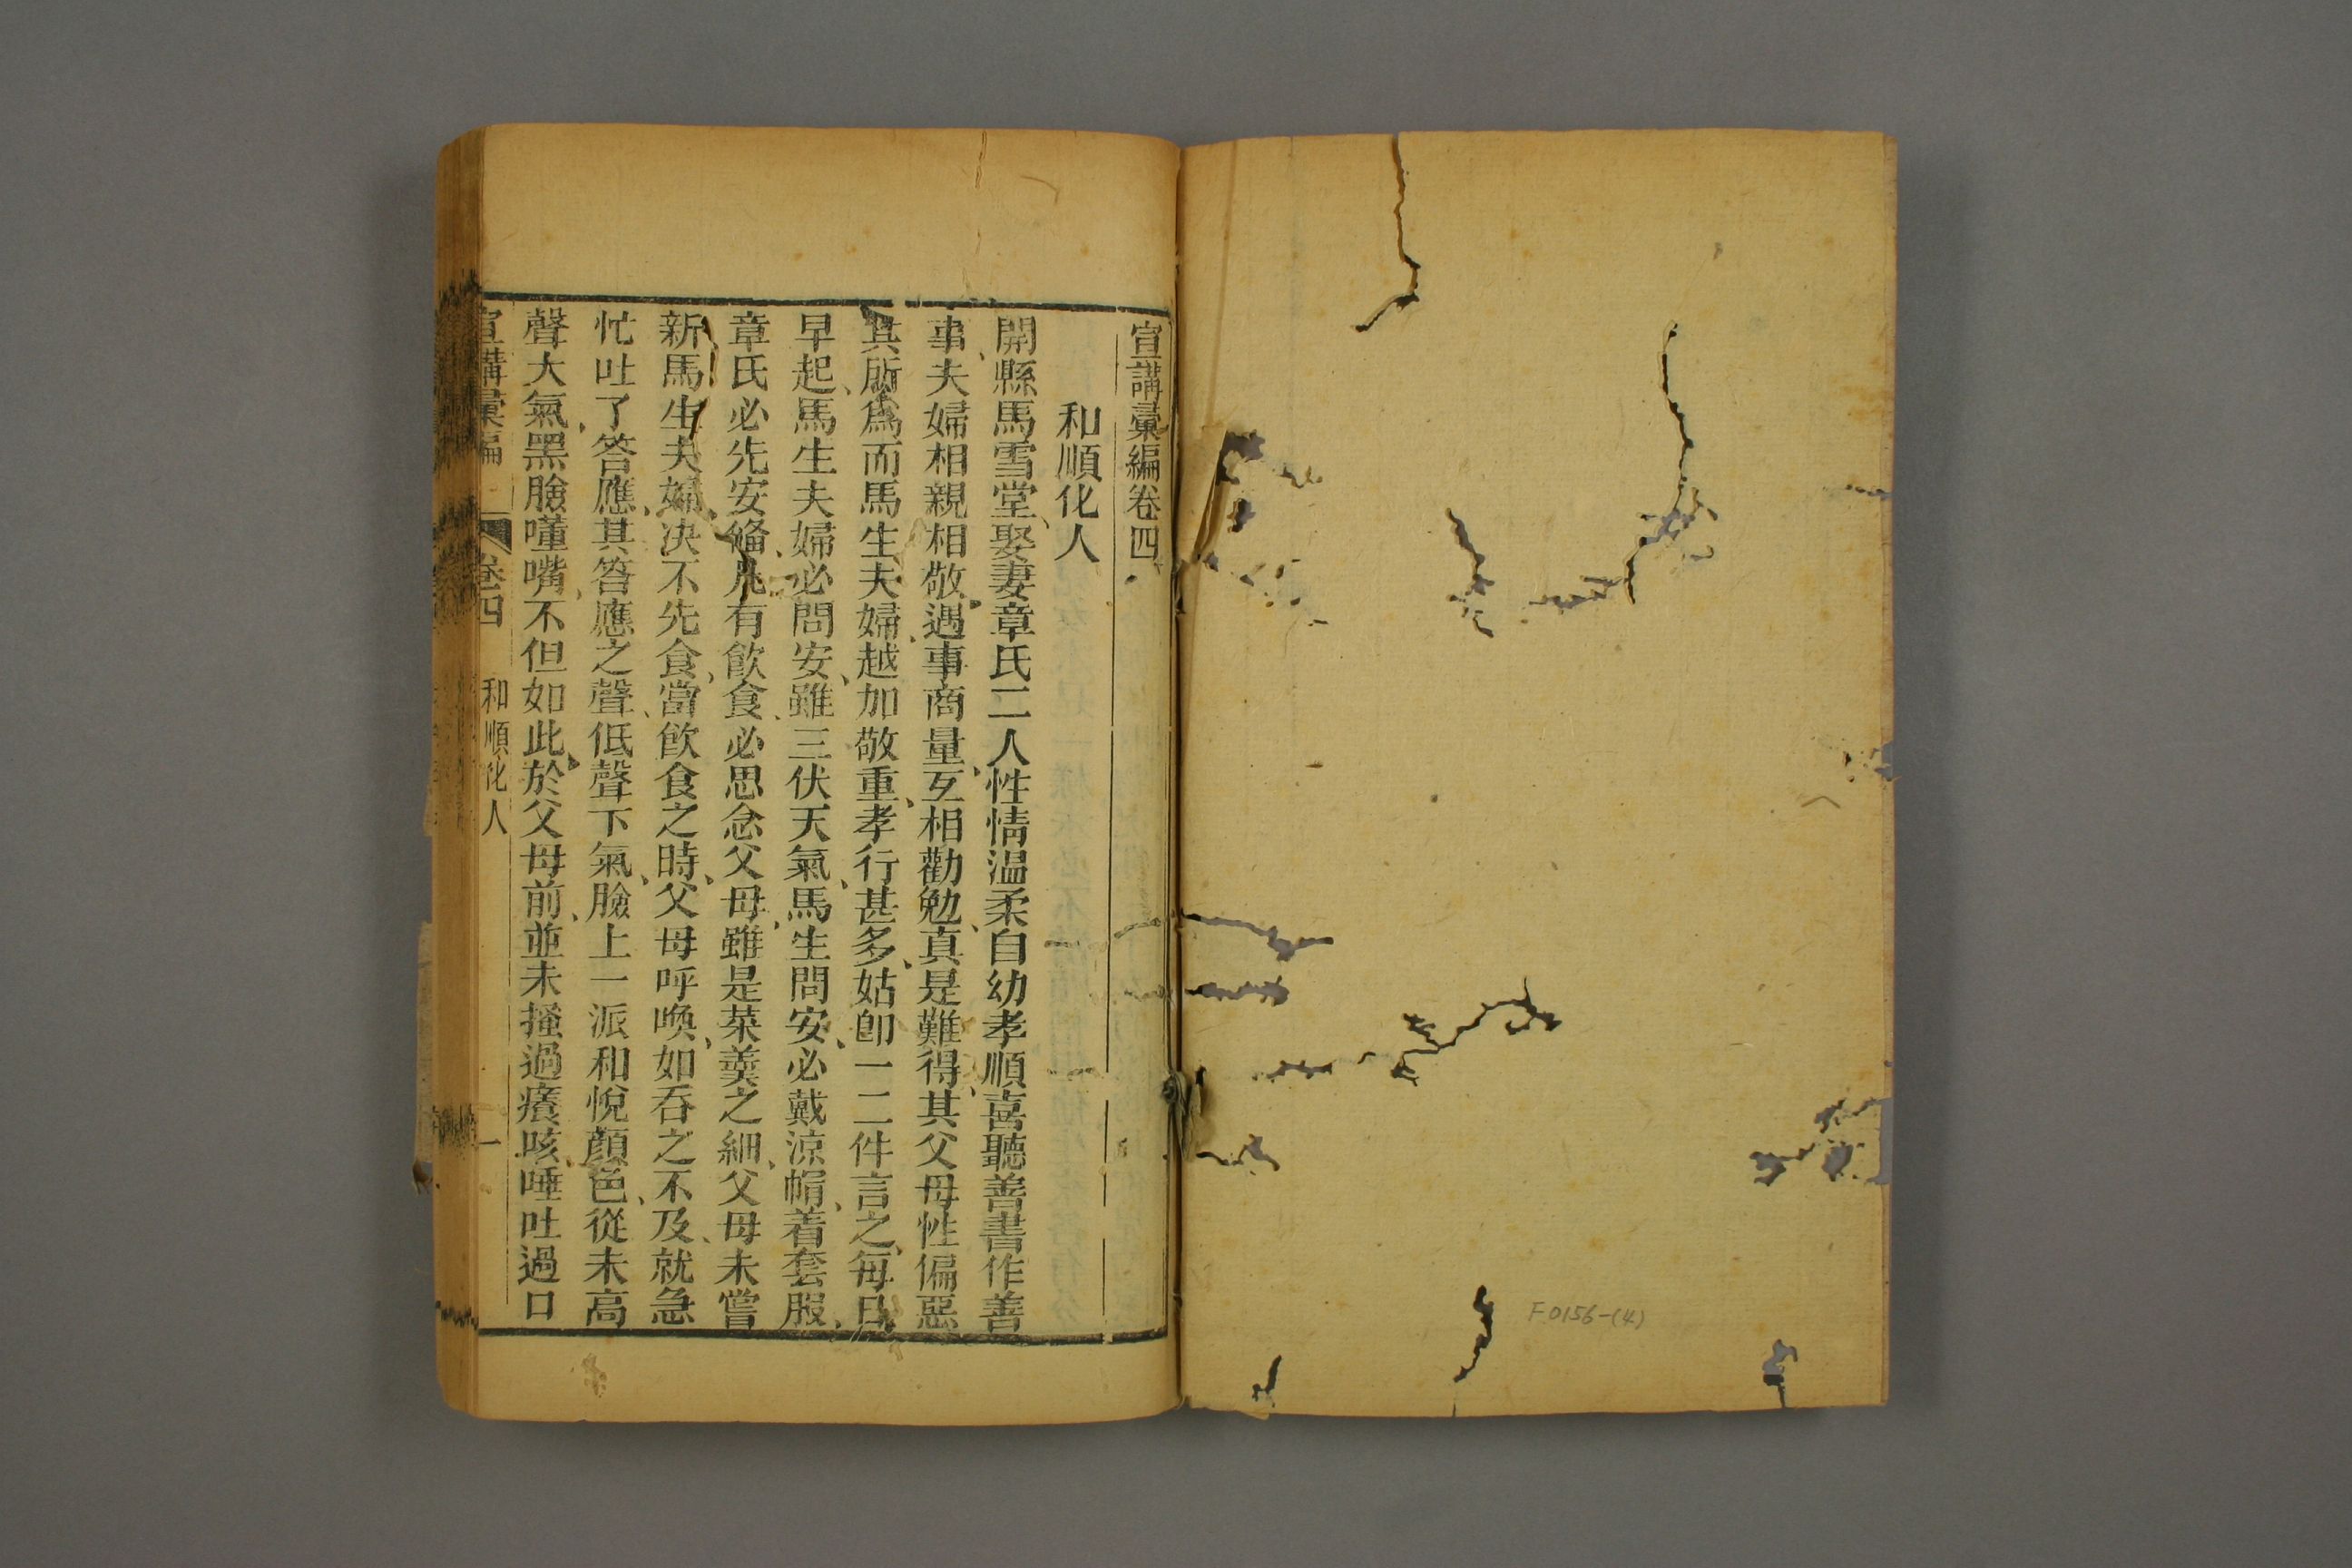 宣講彙編卷四
和順化人
開縣馬雪堂、娶妻章氏二人性情温柔自幼孝順喜聽善書作善
事、夫婦相親相敬、遇事商量、互相勸勉、真是難得、其父母性偏惡
其所爲而馬生夫婦、越加敬重、孝行甚多、姑卽一二件言之、每日
早起、馬生夫婦必問安、雖三伏天氣、馬生問安、必戴涼帽、着套服、
章氏必先安偹、凡有飲食、必思念父母、雖是菜羹之細、父母未嘗
新馬生夫婦、决不先食、當飲食之時、父母呼喚、如吞之不及、就急
忙吐了答應、其答應之聲、低聲下氣、臉上一派和悅顏色、從未高
聲大氣、黑臉嘴、不但如此、於父母前、並未搔過癢咳、唾吐過口
宣講彙編 卷四 和順化人 一
F0156-(4)